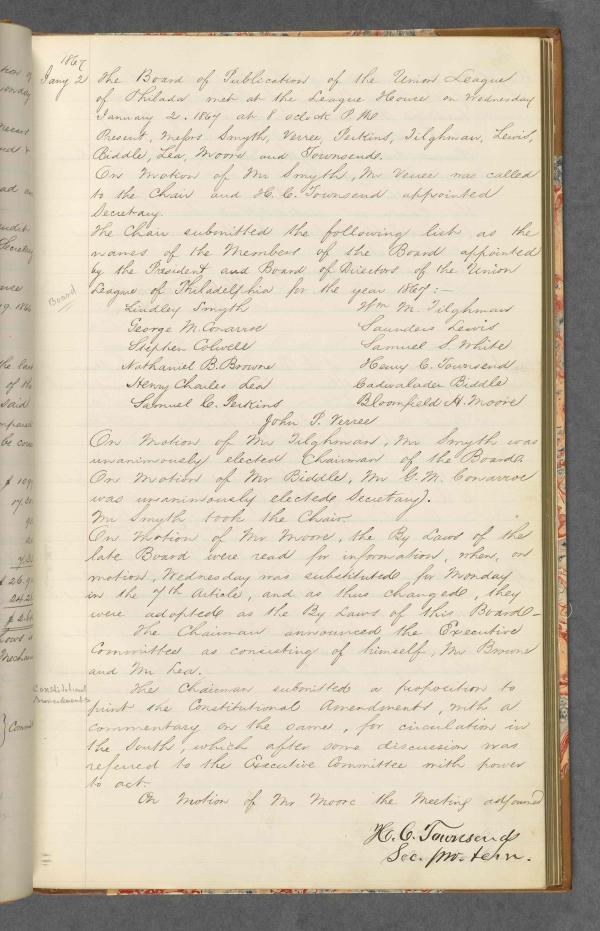 1867
Jany 2 The Board of Publication of the Union League
of Philada met at the League House on Wednesday
January 2. 1867 at 8 oclock P.M.
Present, Messrs Smyth, Verree, Perkins, Tilghman, Lewis,
Biddle, Lea, Moore and Townsend.
On Motion of Mr Smyth, Mr Verree was called
to the Chair and H. C. Townsend appointed
Secretary.
The Chair submitted the following list as the
names of the Members of the Board appointed
by the President and Board of Directors of the Union
Board
League of Philadelphia for the year 1867:—
Lindley Smyth Wm M. Tilghman
George M. Conarroe Saunders Lewis
Stephen Colwell Samuel S. White
Nathaniel B. Browne Henry C. Townsend
Henry Charles Lea Cadwalader Biddle
Samuel C. Perkins Bloomfield H. Moore
John P. Verree
On Motion of Mr Tilghman, Mr Smyth was
unanimously elected Chairman of the Board.
On Motion of Mr Biddle, Mr G. M. Conarroe
was unanimously elected Secretary.
Mr Smyth took the Chair.
On Motion of Mr Moore, the By Laws of the
late Board were read for information, when, on
motion, Wednesday was substituted for Monday
in the 7th Article, and as thus changed, they
were adopted as the By Laws of this Board—
The Chairman announced the Executive
Committee as consisting of himself, Mr Browne
and Mr Lea.
Constitutional
Amendments
The Chairman submitted a proposition to
print the Constitutional Amendments, with a
commentary on the same, for circulation in
the South, which after some discussion was
referred to the Executive Committee with power
to act.
On Motion of Mr Moore the Meeting adjourned
H. C. Townsend
Sec. pro. tem.